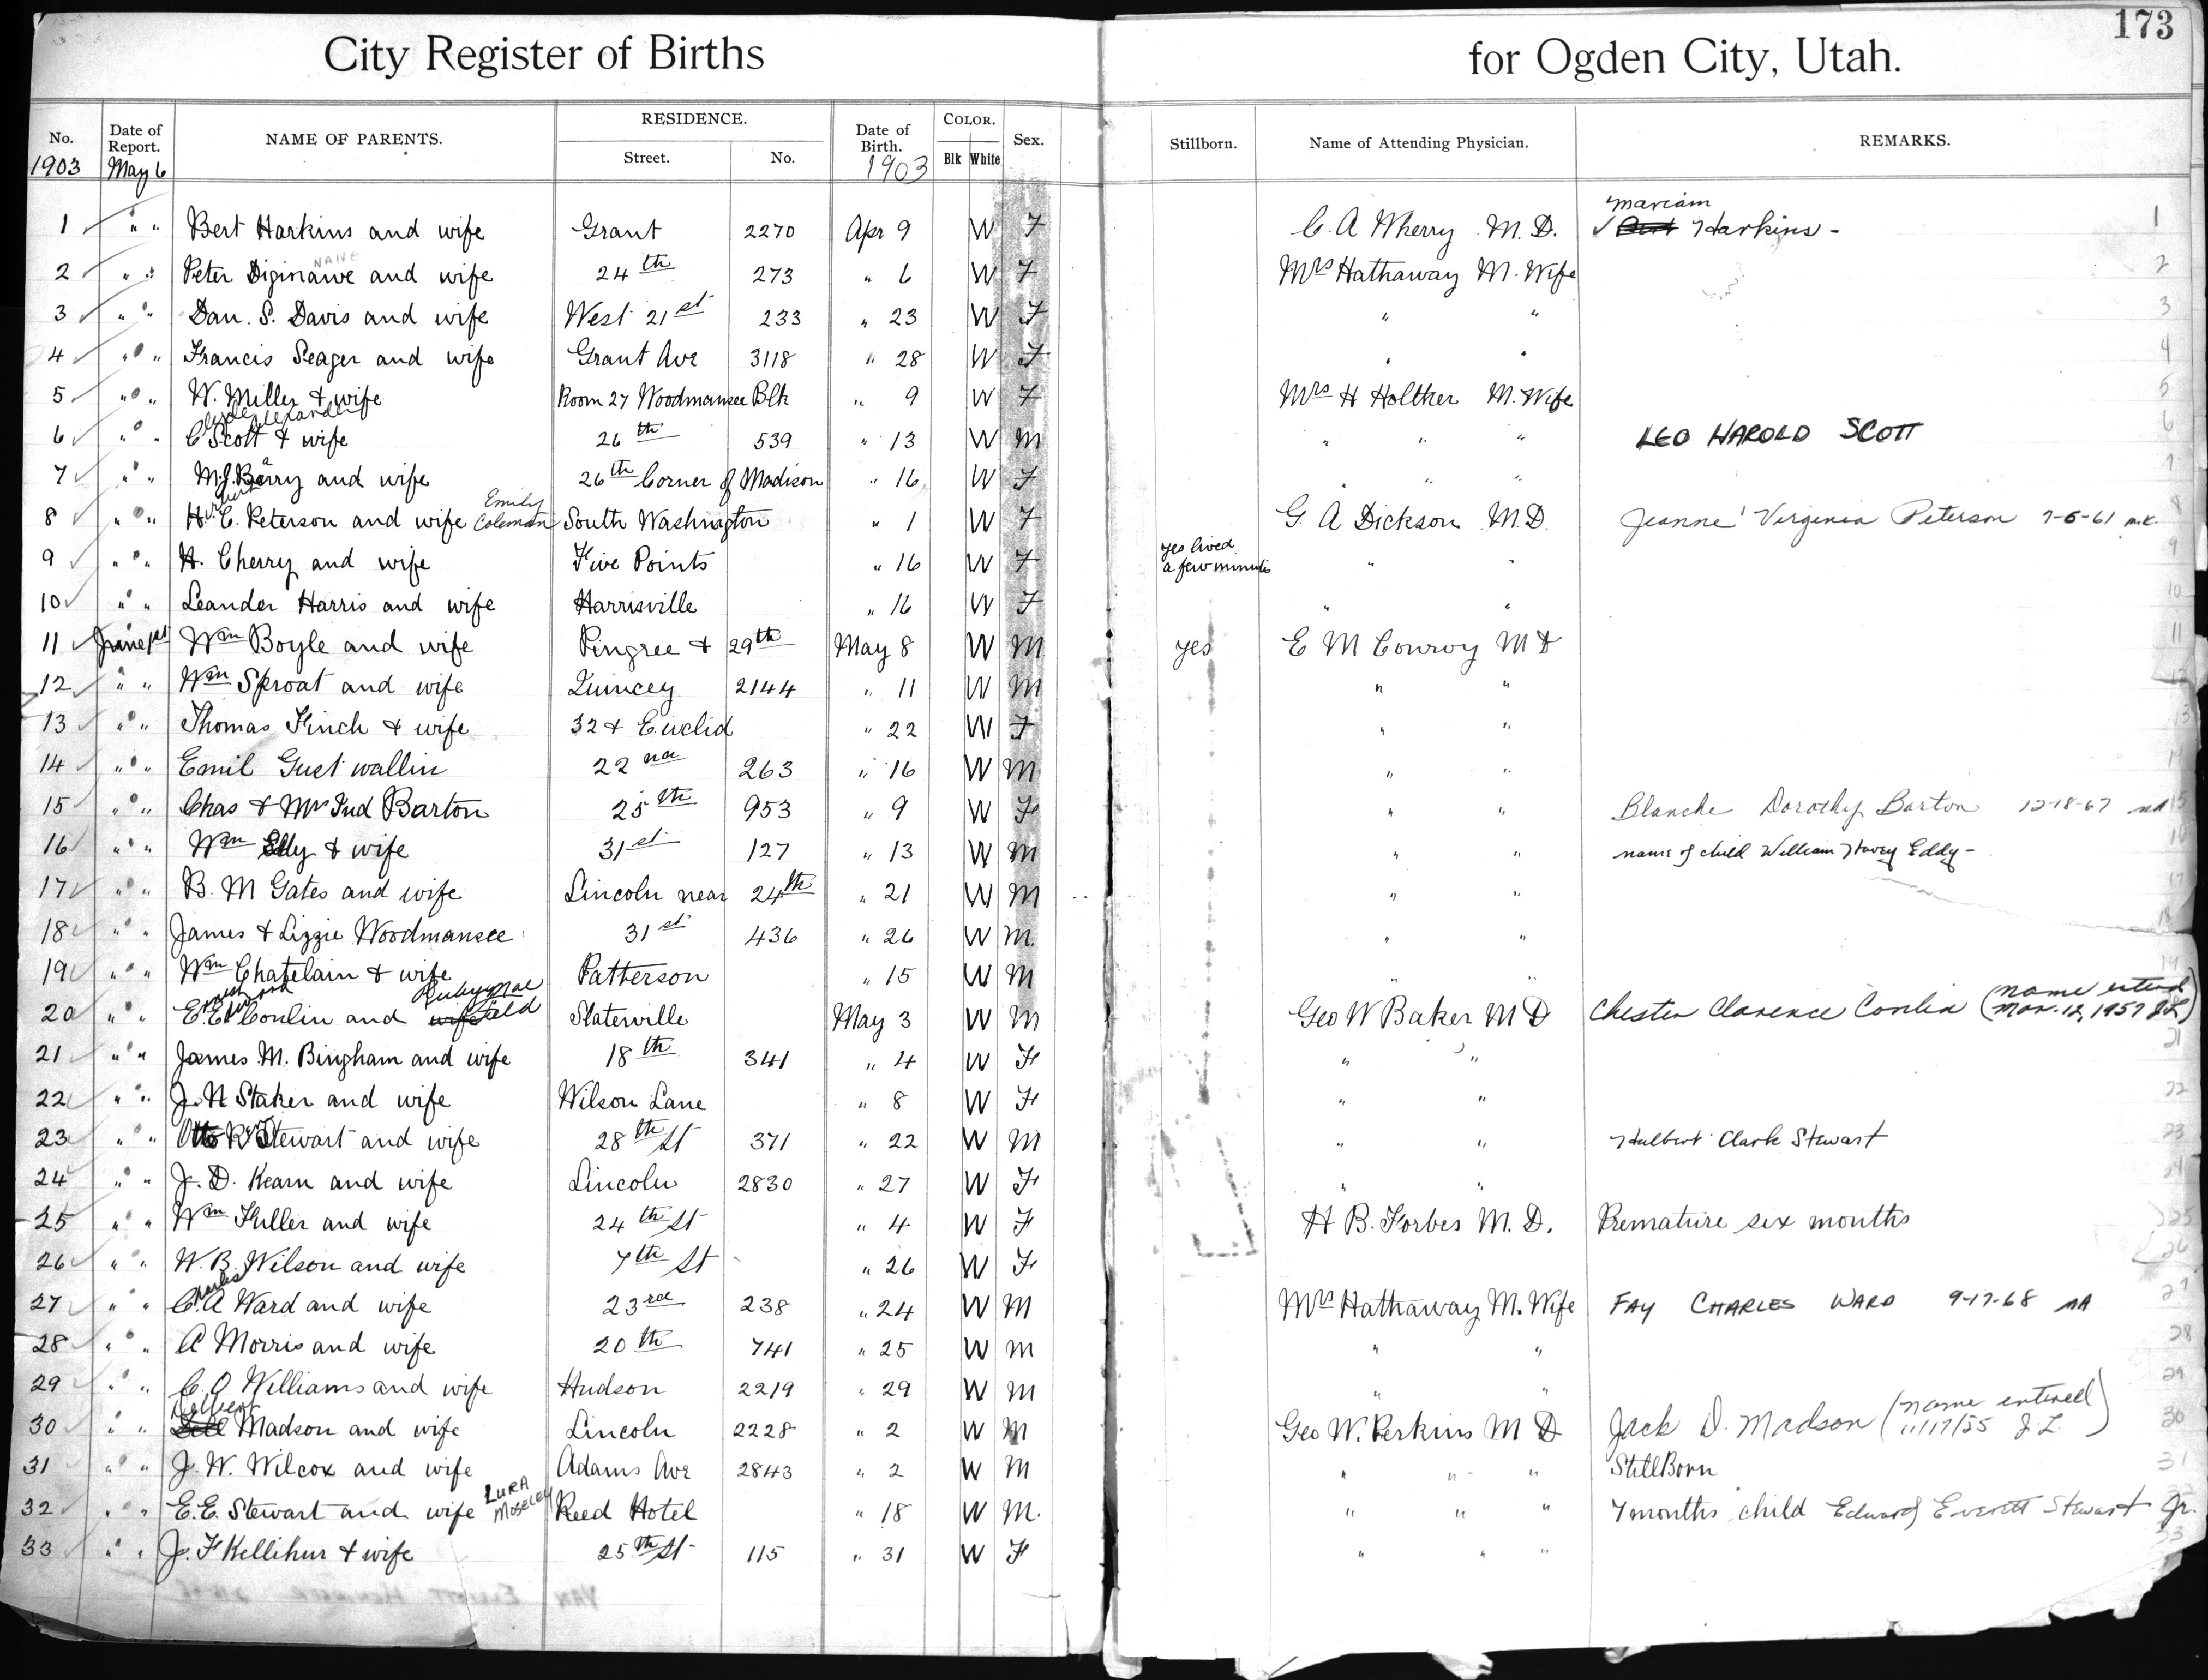 173
City Register of Births for Ogden City, Utah.
No. Date of Report. NAME OF PARENTS. RESIDENCE. Street. No. Date of Birth. COLOR. Blk White Sex. Stillborn. Name of Attending Physician. REMARKS.
1903 May 6 1903
Mariam
1 " " Bert Harkins and wife Grant 2270 Apr 9 W F C. A Wherry M.D. Harkins - 1
NAIVE
2 " " Peter and wife 24th 273 " 6 W F Mrs Hathaway M. Wife 2
3 " " Dan. S. Davis and wife West 21st 233 " 23 W F " " 3
4 " " Francis Seager and wife Grant Ave 3118 " 28 W F " " 4
5 " " W. Miller & wife Room 27 Woodmansee Blk " 9 W F Mrs H Holther M. Wife 5
Clyde Alexander
6 " " C Scott & wife 26th 539 " 13 W M " " " LEO HAROLD SCOTT 6
7 " " M.J. Barry and wife 26th Corner of Madison " 16 W F " " " 7
8 " " H. C. Peterson and wife Emily Coleman South Washington " 1 W F G. A Dickson M.D. Jeanne Virginia Peterson 7-5-61 m.c. 8
9 " " H. Cherry and wife Five Points " 16 W F yes lived a few minutes " " 9
10 " " Leander Harris and wife Harrisville " 16 W F " " 10
11 June 1st Wm Boyle and wife Pingree & 29th May 8 W M yes E M Conroy M D 11
12 " " Wm Sproat and wife Quincey 2144 " 11 W M " " 12
13 " " Thomas Finch & wife 32 & Euclid " 22 W F " " 13
14 " " Emil Gust wallin 22nd 263 " 16 W M " " 14
15 " " Chas & Mrs Barton 25th 953 " 9 W F " " Blanche Dorothy Barton 12-18-67 15
16 " " Wm & wife 31st 127 " 13 W M " " name of child William Eddy - 16
17 " " B. M Gates and wife Lincoln near 24th " 21 W M " " 17
18 " " James & Lizzie Woodmansee 31st 436 " 26 W M. " " 18
19 " " Wm Chatelain & wife Patterson " 15 W M " " 19
20 " " E. E. Conlin and wife Ruby Mae Slaterville May 3 W M Geo W Baker M D Chester Clarence Conlin (name entered Mar. 12, 1957 J.L.)
21 " " James M. Bingham and wife 18th 341 " 4 W F " " 21
22 " " J. N Staker and wife Wilson Lane " 8 W F " " 22
23 " " Otto Stewart and wife 28th St 371 " 22 W M " " Hulbert Clark Stewart 23
24 " " J. D. Kearn and wife Lincoln 2830 " 27 W F " " 24
25 " " Wm Fuller and wife 24th St " 4 W F H B. Forbes M. D. Premature six months 25
26 " " W. B. Wilson and wife 7th St " 26 W F 26
Charles
27 " " C. A Ward and wife 23rd 238 " 24 W M Mrs Hathaway M. Wife FAY CHARLES WARD 9-17-68 27
28 " " A Morris and wife 20th 741 " 25 W M " " 28
29 " " C. O Williams and wife Hudson 2219 " 29 W M " " 29
Delbert
30 " " Madson and wife Lincoln 2228 " 2 W M Geo W. Perkins M D Jack D. Madson (name entered 11/17/55 J.L.) 30
31 " " J. W. Wilcox and wife Adams Ave 2843 " 2 W M " " " StillBorn 31
32 " " E. E. Stewart and wife LURA MOSELEY Reed Hotel " 18 W M. " " " 7 months child Edward Everett Stewart Jr.
33 " " J. F Kellihur & wife 25th St 115 " 31 W F " " " 33